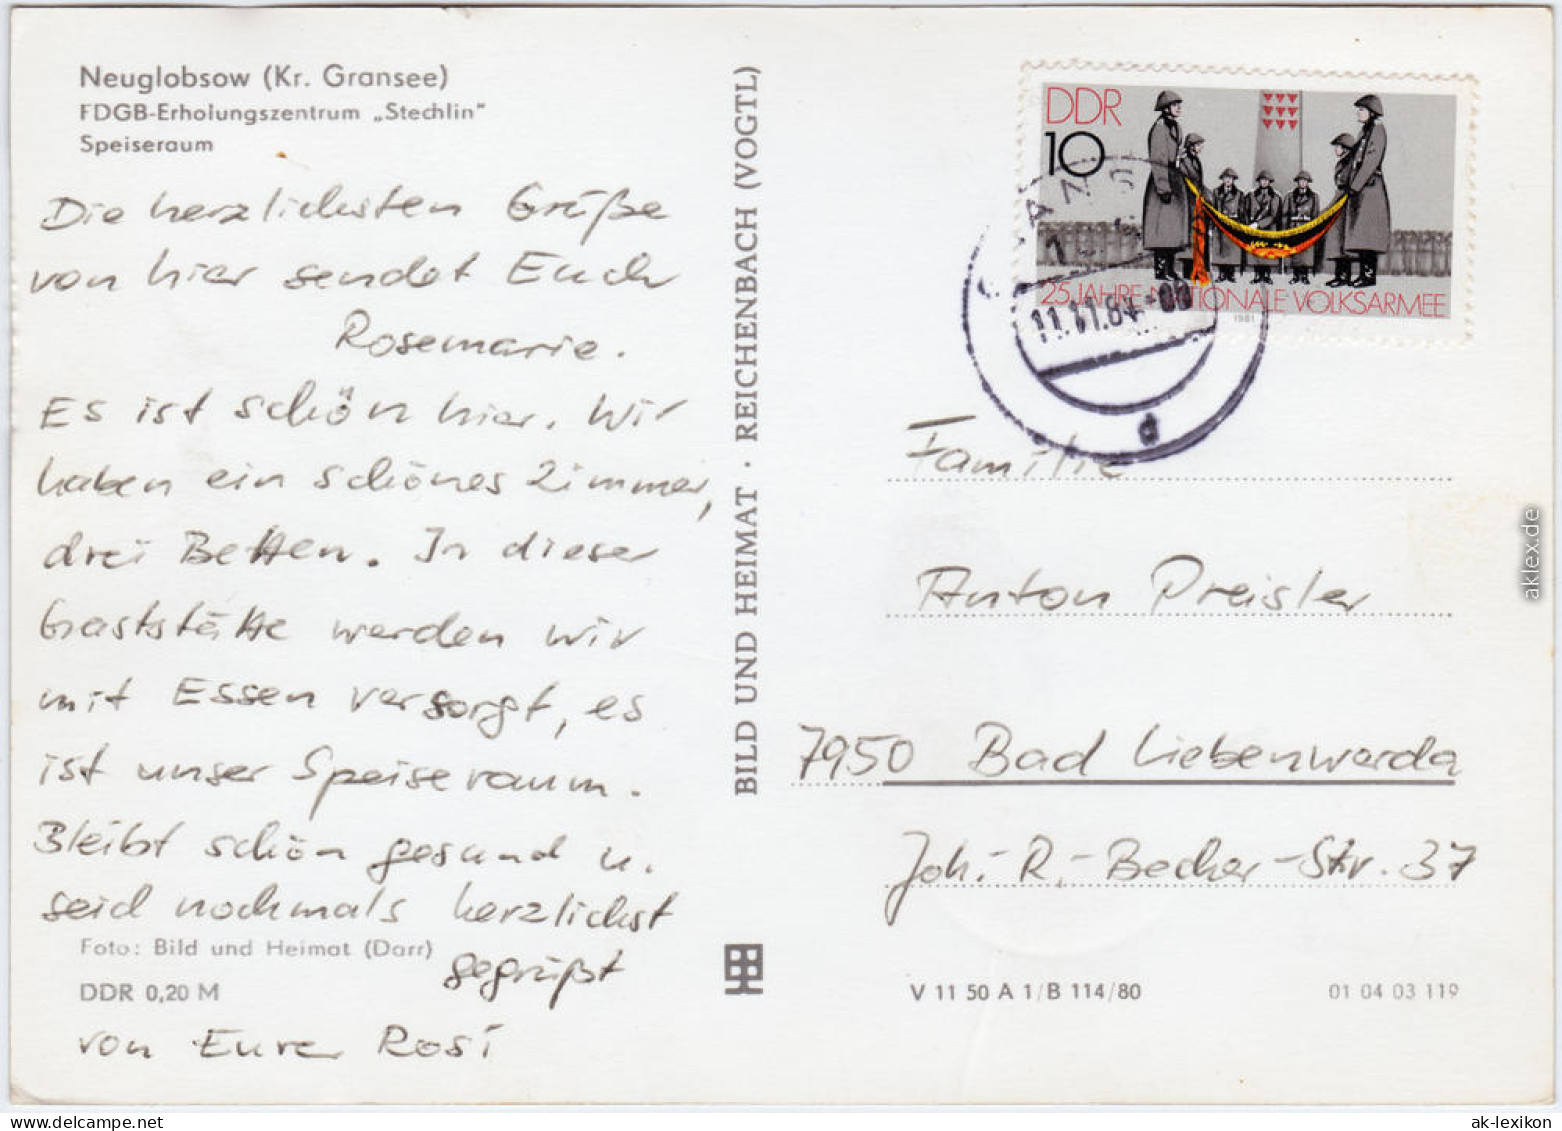 Neuglobsow (Kr. Gransee)
FDGB-Erholungszentrum „Stechlin"
Speiseraum
Die herzlichsten Grüße
von hier sendet Euch
Rosemarie.
Es ist schön hier. Wir
haben ein schönes Zimmer,
drei Betten. In dieser
Gaststätte werden wir
mit Essen versorgt, es
ist unser Speiseraum.
Bleibt schön gesund u.
seid nochmals herzlichst
gegrüßt
von Eurer Rosi
Foto: Bild und Heimat (Darr)
DDR 0,20 M
BILD UND HEIMAT · REICHENBACH (VOGTL)
DDR
10
25 JAHRE NATIONALE VOLKSARMEE
1981
11.11.81
d
Familie
Anton Preisler
7950 Bad Liebenwerda
Joh.-R.-Becher-Str. 37
V 11 50 A 1/B 114/80
01 04 03 119
aklex.de
ak-lexikon